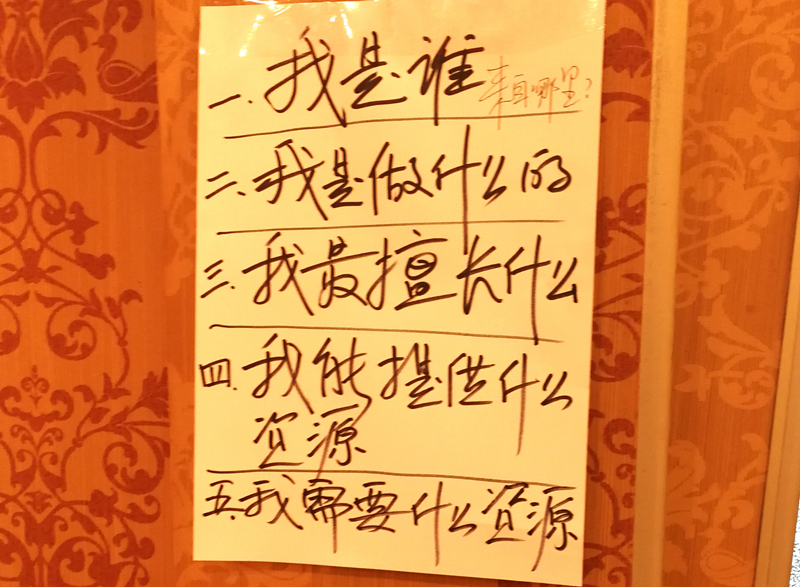 一.我是谁 来自哪里?
二.我是做什么的
三.我最擅长什么
四.我能提供什么
资源
五.我需要什么资源